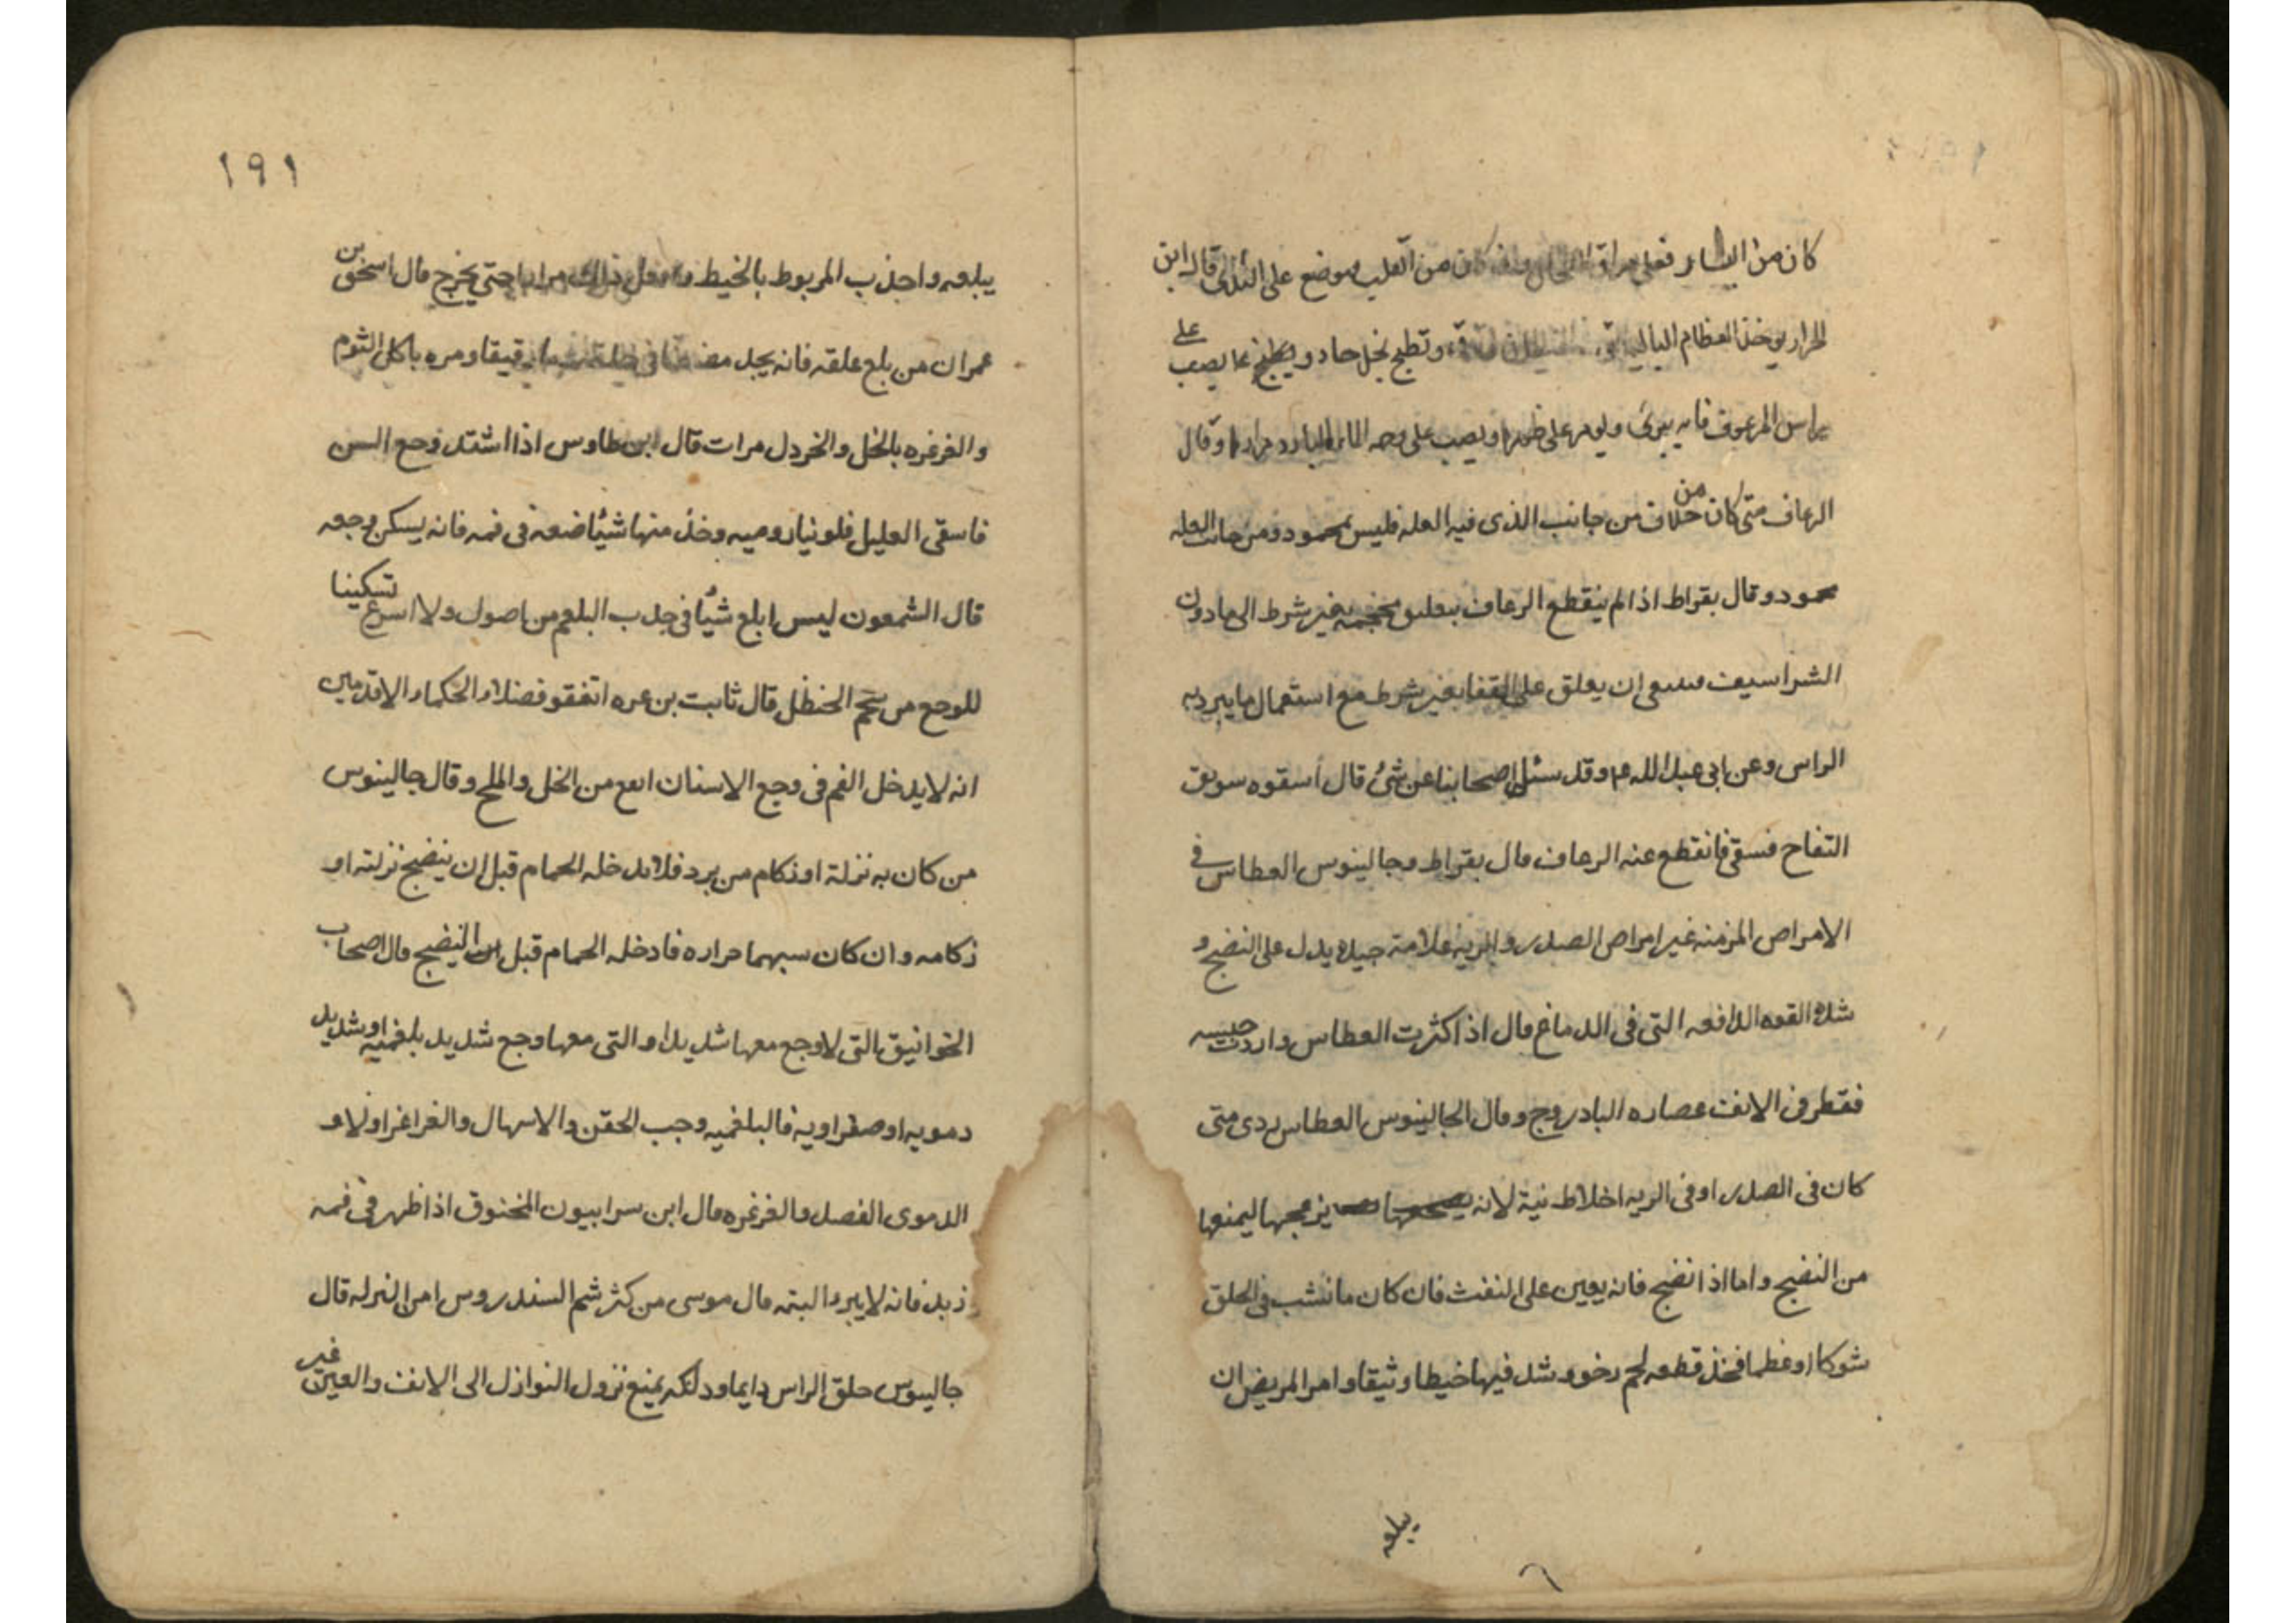 كان من اليسار فعلى مراق الطحال وان كان من القلب فوضع على الثدى قال ابن
الحرار يوخذ العظام الباليه وتطبخ بخل حاد ويطبخ بما يصب على
براس المرعوف فانه يبرئ ويومر على ظهره ويصب على وجهه الماء البارد مرارا وقال
الرعاف متى كان من خلاف من جانب الذى فيه العله فليس بمحمود ومن جانب العله
محمود وقال بقراط اذا لم ينقطع الرعاف بتعليق محجمه بغير شرط الى ما دون
الشراسيف فينبغى ان يعلق على القفا بغير شرط مع استعمال ما يبرد به
الراس وعن ابى عبد الله ع وقد سئل اصحابنا عن شئ قال أسقوه سويق
التفاح فسقى فانقطع عنه الرعاف قال بقراط وجالينوس العطاس فى
الامراض المزمنه غير امراض الصدر والريه علامة جيده يدل على النضج و
شدة القوه الدافعه التى فى الدماغ قال اذا كثرت العطاس واردت حبسه
فقطر فى الانف عصاره البادروج وقال الجالينوس العطاس ردى متى
كان فى الصدر او فى الريه اخلاط نية لانه يزعجها ليمنعها
من النضج واما اذا نضج فانه يعين على النفث فان كان ما نشب فى الحلق
شوكا او عظما فخذ قطعه لحم رخو وشد فيها خيطا وثيقا وامر المريض ان
يبلعه
١٩١
يبلعه واجذب المربوط بالخيط وافعل ذلك مرارا حتى يخرج قال اسحق بن
عمران من بلع علقه فانه يجد دما رقيقا ومره باكل الثوم
والغرغره بالخل والخردل مرات قال ابن طاوس اذا اشتد وجع السن
فاسقى العليل فلونيا روميه وخذ منها شيئا ضعه فى فمه فانه يسكن وجعه
قال الشمعون ليس ابلغ شيئا فى جذب البلغم من اصول ولا اسرع تسكينا
للوجع من شحم الحنظل قال ثابت بن عره اتفقو فضلاء الحكماء الاقدمين
انه لا يدخل الفم فى وجع الاسنان انفع من الخل والملح وقال جالينوس
من كان به نزلة او زكام من برد فلا تدخله الحمام قبل ان ينضج نزلته او
زكامه وان كان سببهما حراره فادخله الحمام قبل النضج قال اصحاب
الخوانيق التى لا وجع معها شديد او التى معها وجع شديد بلغميه او شديد
دمويه او صفراويه فالبلغميه وجب الحقن والاسهال والغراغر اولا و
الدموى الفصد والغرغره قال ابن سرابيون المخنوق اذا ظهر فى فمه
زبد فانه لا يبرء البته قال موسى من كثر شم السندروس امن النزله قال
جالينوس حلق الراس دايما ودلكه يمنع نزول النوازل الى الانف والعين غير